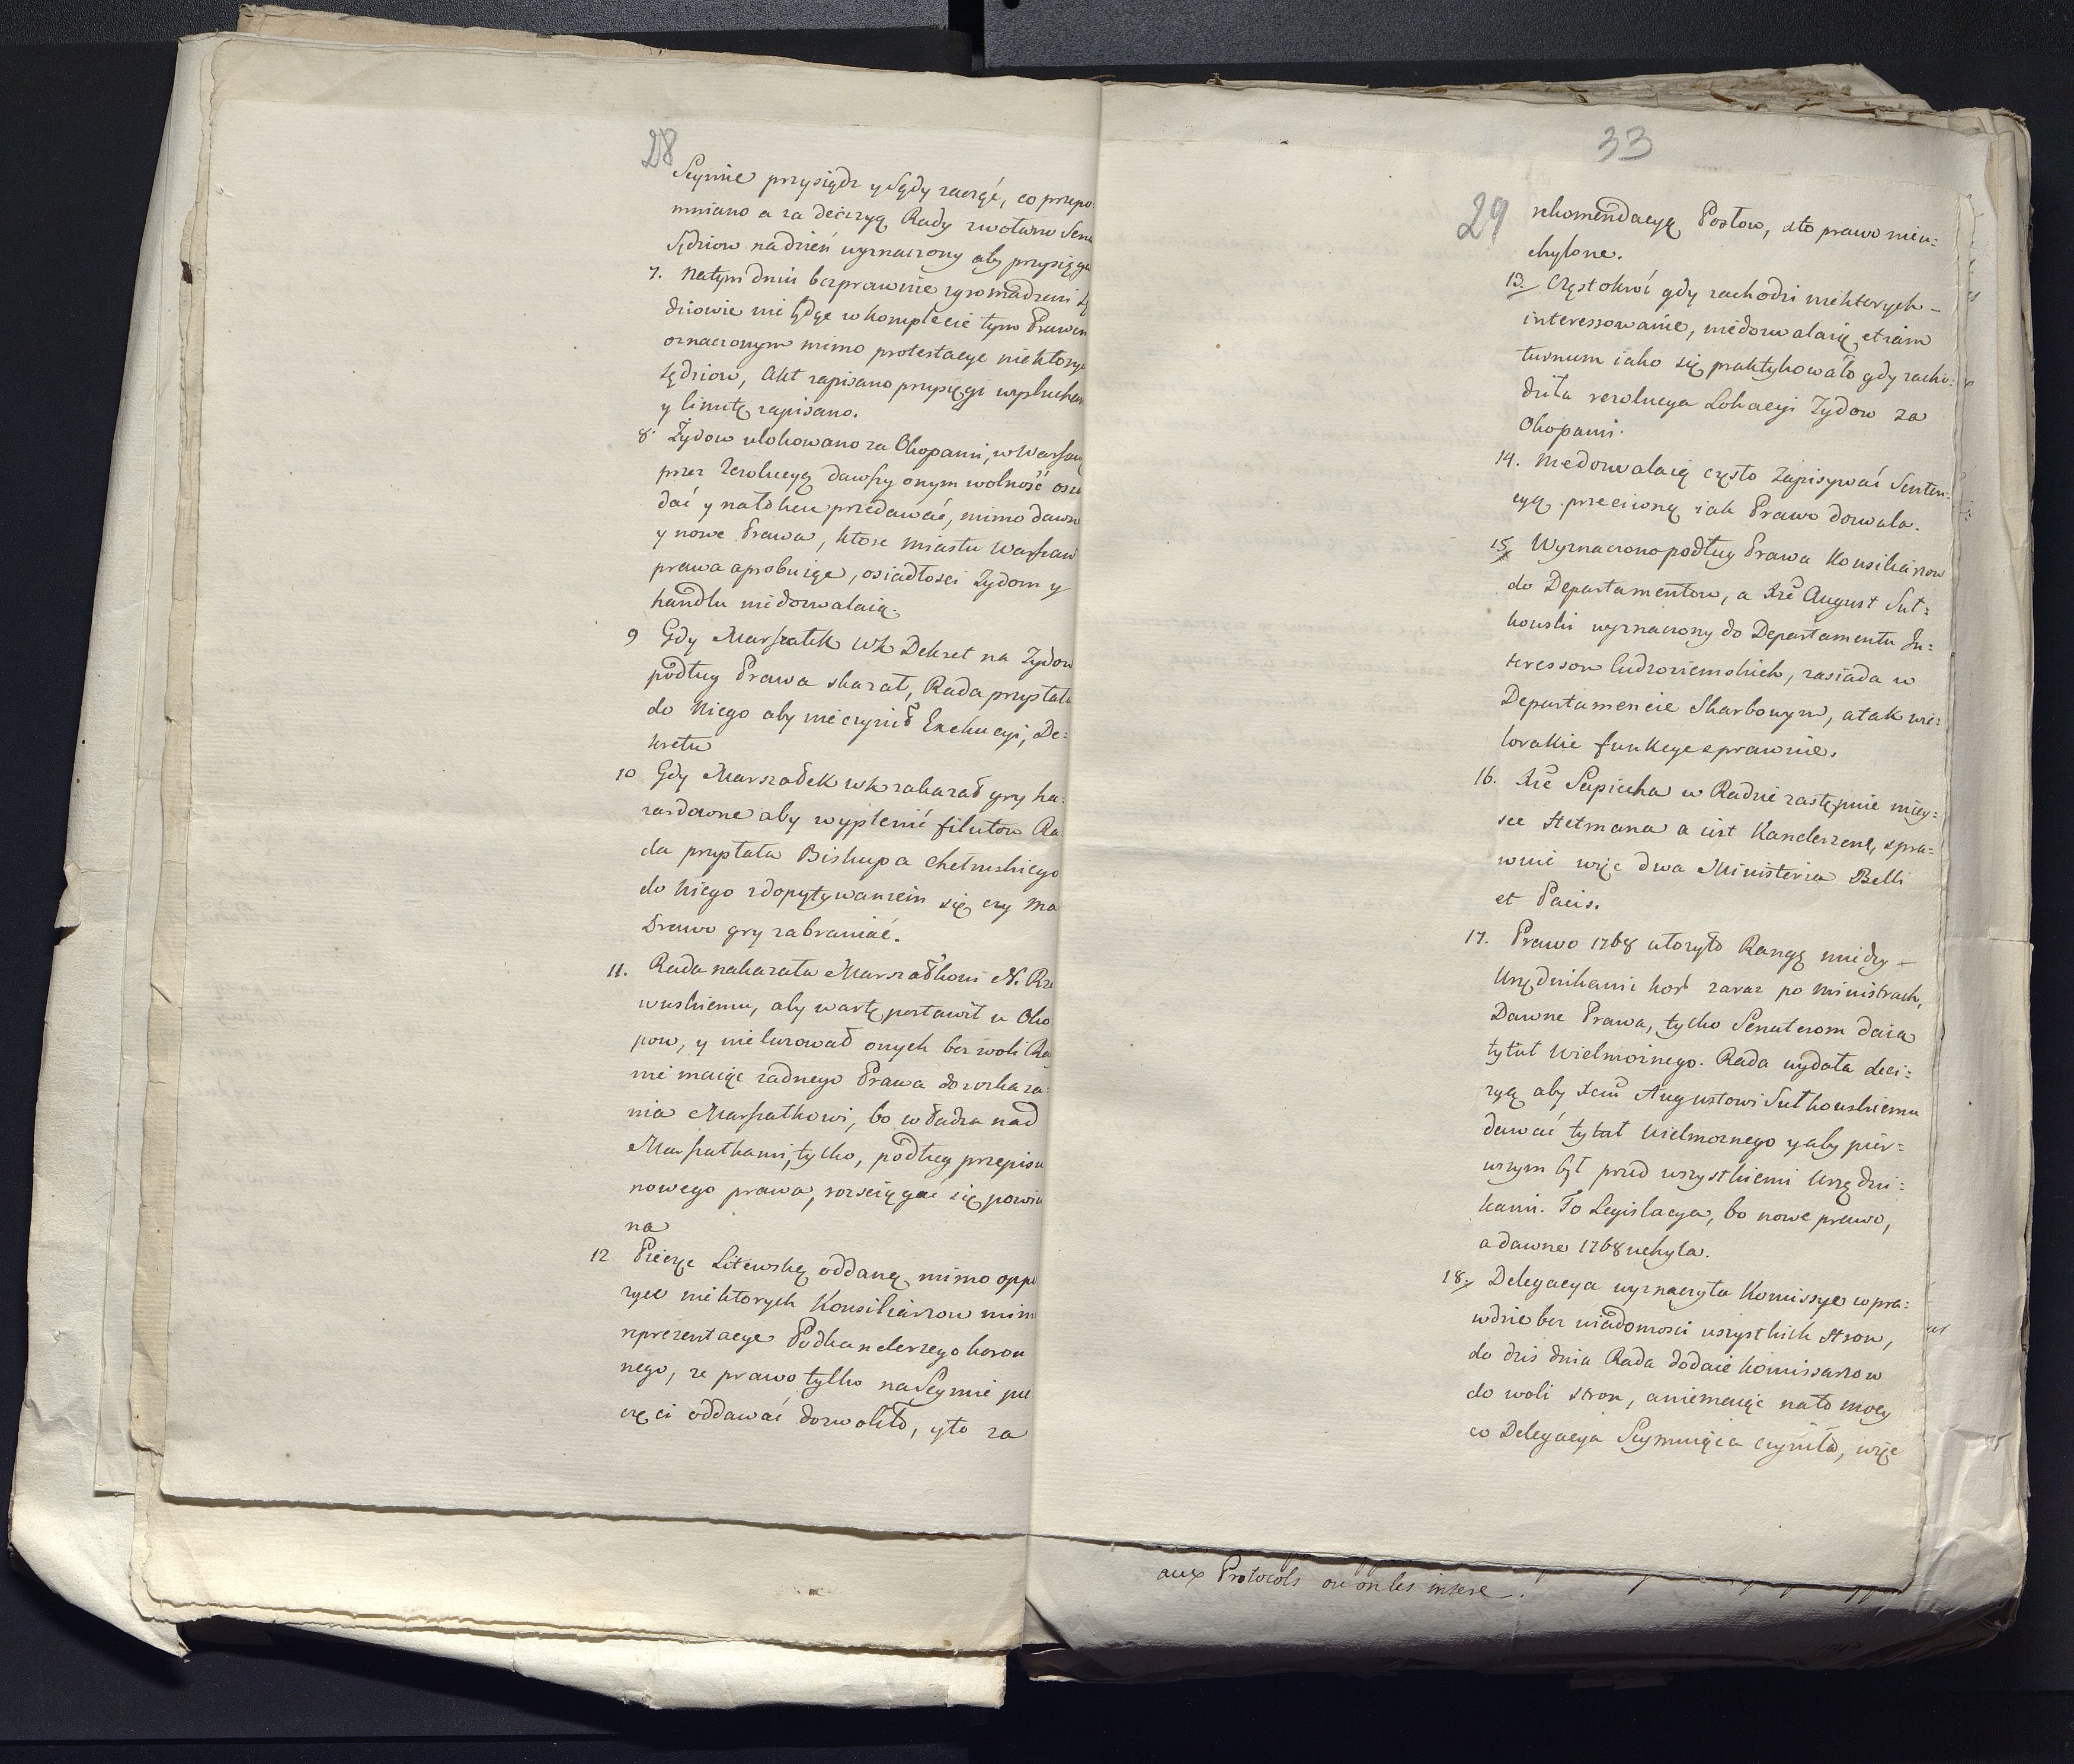 28
Seymie przysiądz y Sądy zacząć, co przepo:
mniano a za decyzyą Rady zwołano
Sędziow na dzień wyznaczony aby
7. Na tym dniu bezprawnie zgromadzeni
dziowie nie będąc w komplecie tym Prawem
oznaczonym mimo protestacye niektory
Sędziow, Akt zapisano przysięgi wysłuchan
y limitę zapisano.
8. Żydow ulokowano za Okopami, w Warszaw
przez Rezolucyą dawszy onym wolność osia
dać y na to sie przedawać, mimo dawne
y nowe Prawa, ktore Miastu Warszaw
prawa aprobuiąc, osiadłości Żydom y
handlu niedozwalaią.
9 Gdy Marszałek WK Dekret na Żydow
podług Prawa skazał, Rada przysłała
do Niego aby nie czynił Exekucyi, De:
kretu
10 Gdy Marszałek wk zakazał gry ha:
zardowne aby wyplenić filutow Ra
da przysłała Biskupa Chełmskiego
do Niego z dopytywaniem się czy ma
Prawo gry zabraniać.
11. Rada nakazała Marszałkowi N. Rze
wuskiemu, aby wartę postawił u Oko
pow, y nie luzował onych bez woli Ra
nie maiąc żadnego Prawa do rozkaza:
nia Marszałkowi, bo władza nad
Marszałkami, tylko, podług przepisu
nowego prawa, rozciągać się powin
na
12 Pieczęć Litewską oddaną mimo oppo
zycye niektorych Konsiliarzow mimo
reprezentacye Podkanclerzego koron
nego, że prawo tylko na Seymie pie
częci oddawać dozwoliło, y to za
33
29
rekomendacyą Posłow, a to prawo nieu:
chylone.
13. Częstokroć gdy zachodzi niektorych -
interessowanie, niedozwalaią etiam
turnum iako się praktykowało gdy zacho:
dziła rezolucya Lokacyi Żydow za
Okopami.
14. Niedozwalaią często zapisywać Senten:
cyą przeciwną iak Prawo dozwala.
15. Wyznaczono podług Prawa Konsiliarzow
do Departamentow, a Xże August Suł:
kowski wyznaczony do Departamentu In:
teressow Cudzoziemskich, zasiada w
Departamencie Skarbowym, a tak wie:
lorakie funkcye sprawuie.
16. Xże Sapieha w Radzie zastępuie miey:
sce Hetmana a iest Kanclerzem, spra:
wuie więc dwa Ministeria Belli
et Pacis.
17. Prawo 1768 ułożyło Rangę między -
Urzędnikami kor zaraz po Ministrach,
Dawne Prawa, tylko Senatorom daią
tytuł Wielmożnego. Rada wydała deci:
zyą aby Xciu Augustowi Sułkowskiemu
dawać tytuł Wielmoznego y aby pier:
wszym był przed wszystkiemi Urzędni:
kami. To Legislacya, bo nowe prawo,
a dawne 1768 uchyla.
18. Delegacya wyznaczyła Komissye wpra:
wdzie bez wiadomosci wszystkich stron,
do dziś dnia Rada dodaie Komissarzow
do woli stron, a niemaiąc na to mocy
co Delegacya Seymuiąca czyniła, więc
aux Protocols ou on les insere.